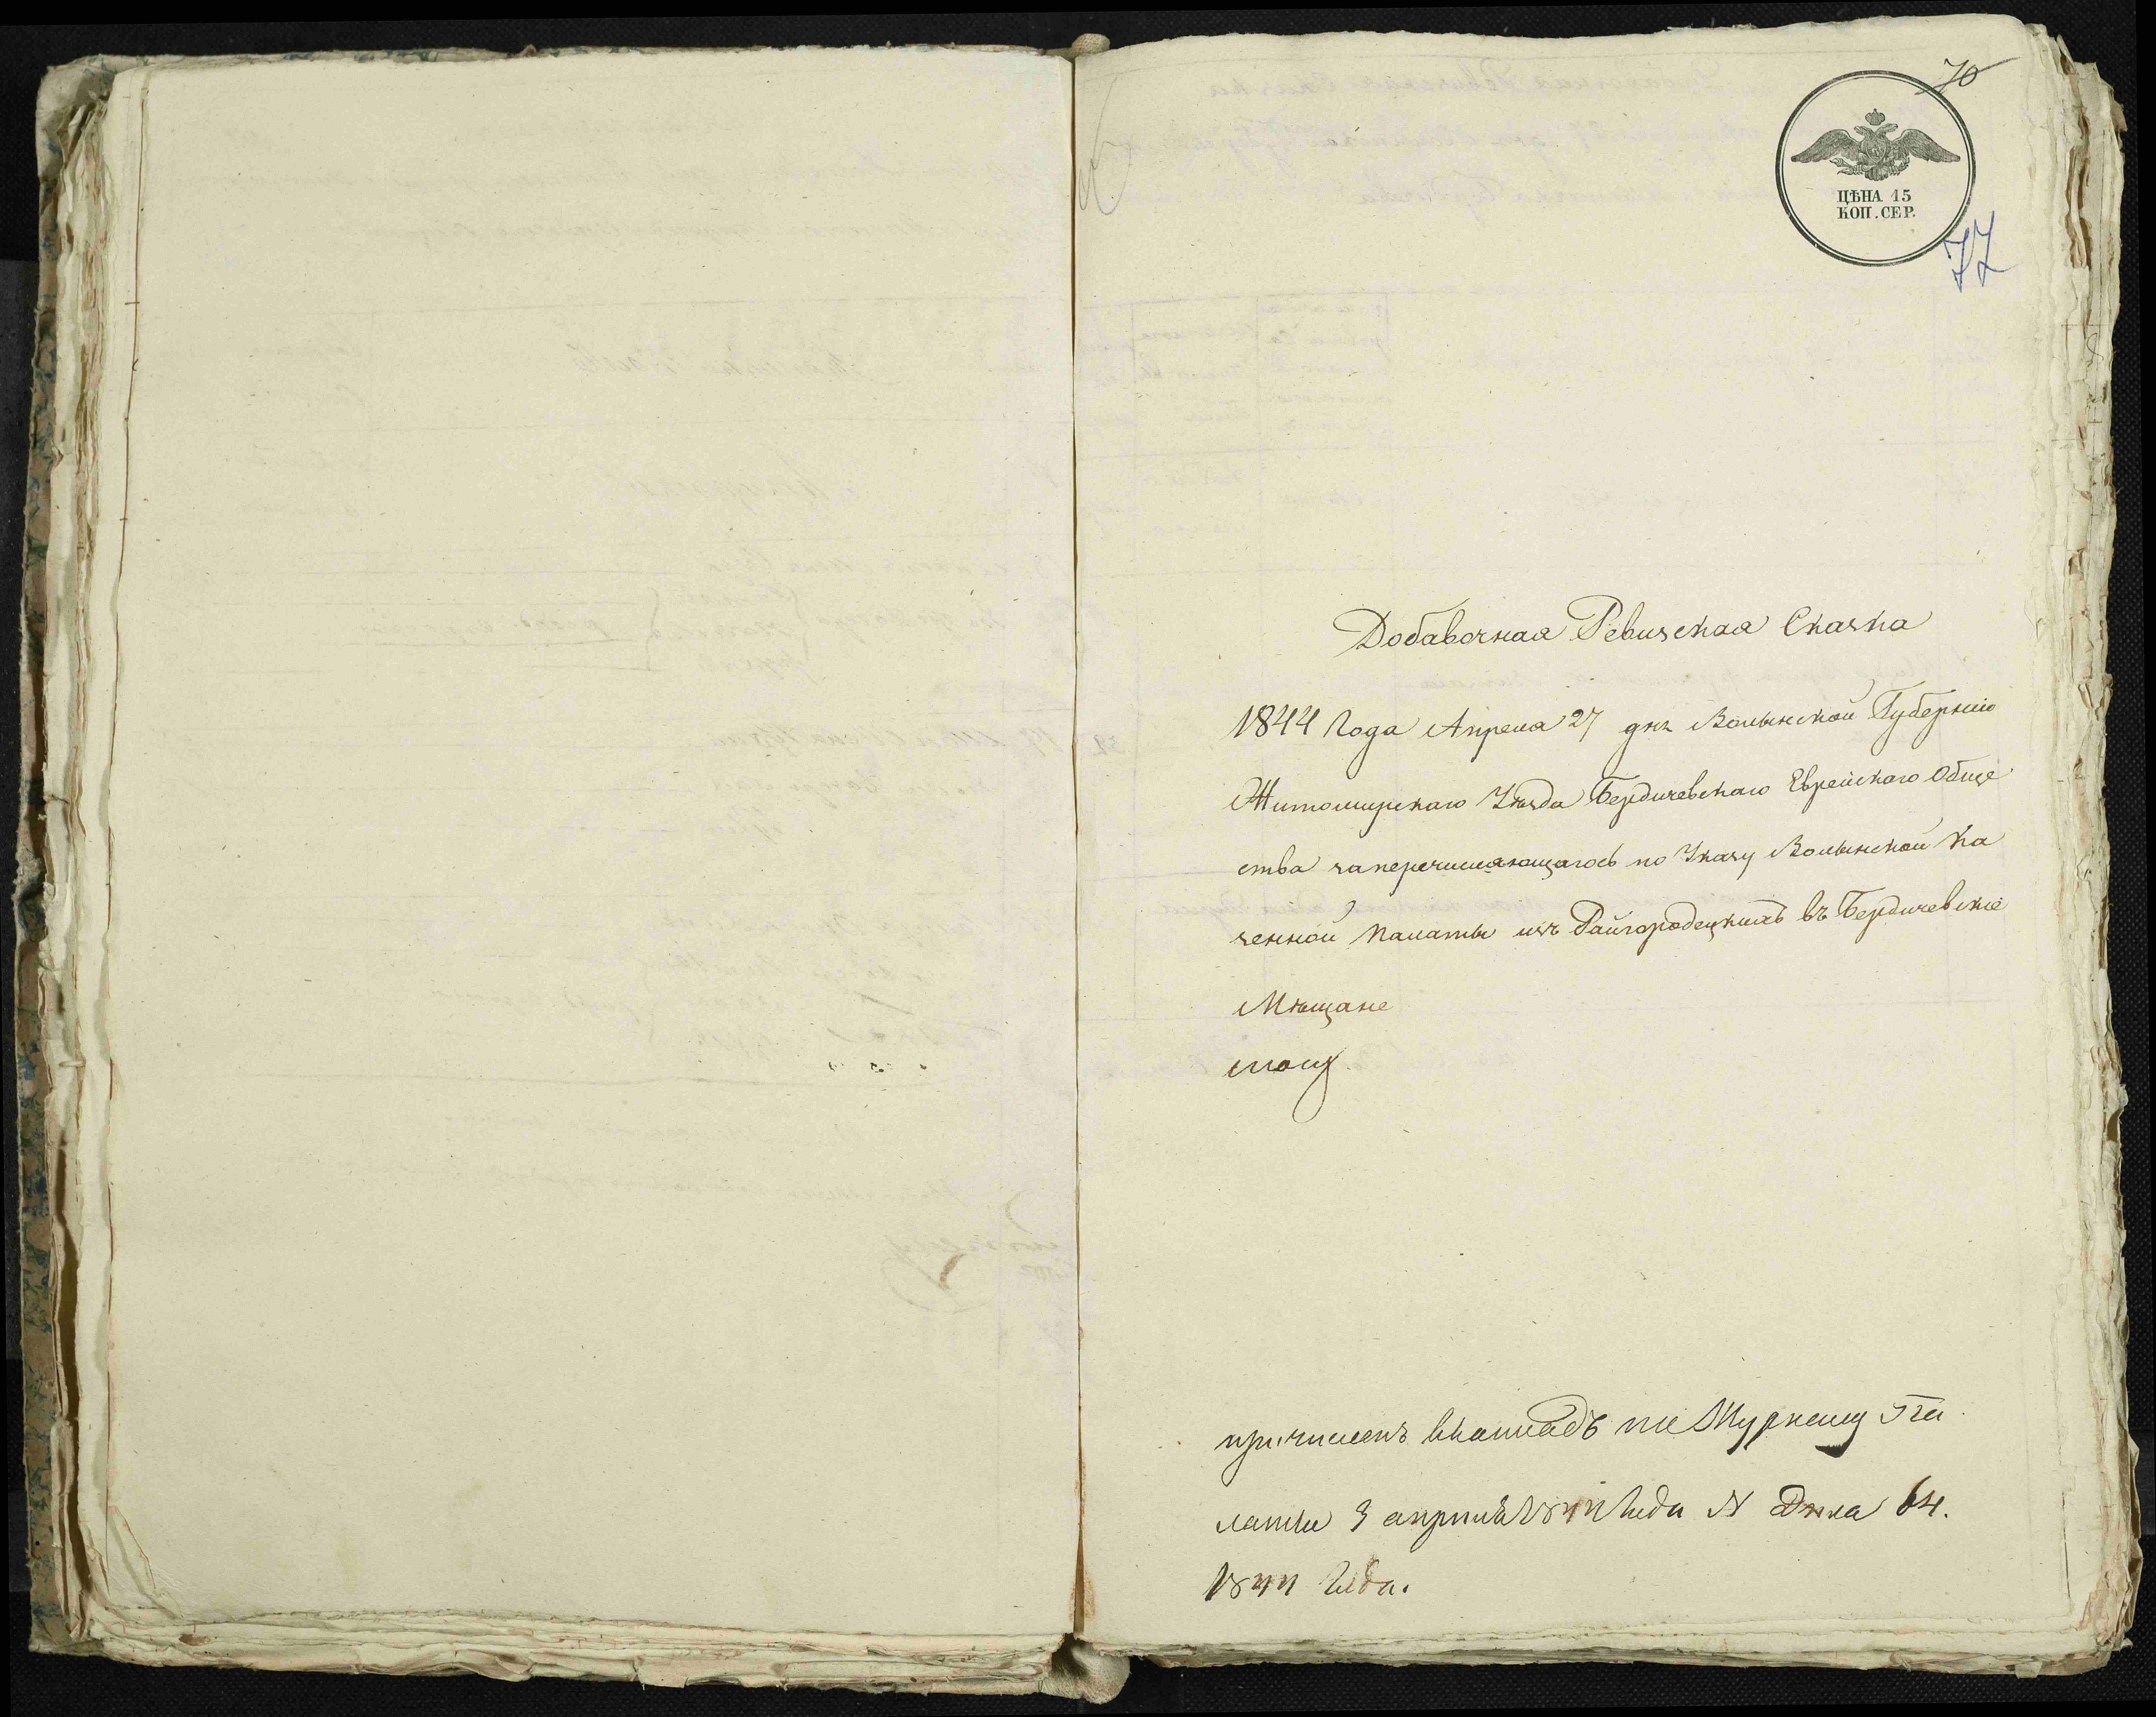 70
ЦѢНА 15
КОП. СЕР.
77
Добавочная Ревизская Сказка
1844 Года Апреля 27 дня Волынской Губернiи
Житомирскаго Уѣзда Бердичевскаго Еврейскаго Обще
ства заперечисляющагось по Указу Волынской Ка
зенной Палаты изъ Райгородецкихъ въ Бердичевскiе
Мѣщане
причисленъ
латы 3 апрѣля 1844 Года N Дѣла 64.
1844 Года.